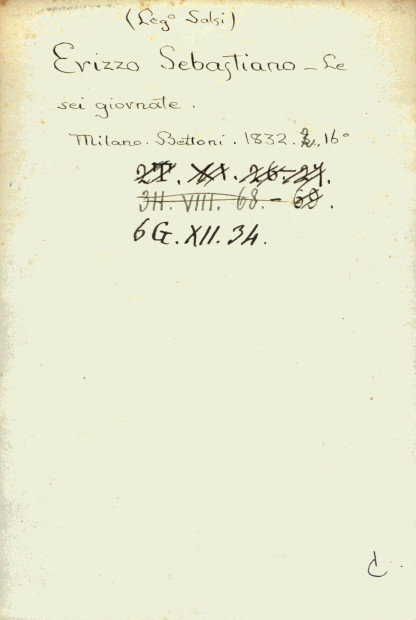 (Leg° Salsi)
Erizzo Sebastiano - Le
sei giornate.
Milano. Bettoni. 1832. 16°
3H. VIII. 68. - 69.
6 G. XII. 34.
C